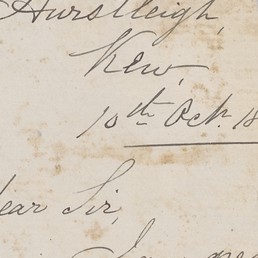 Hurstleigh,
Kew,
10th Oct. 18
ear Sir,
I am